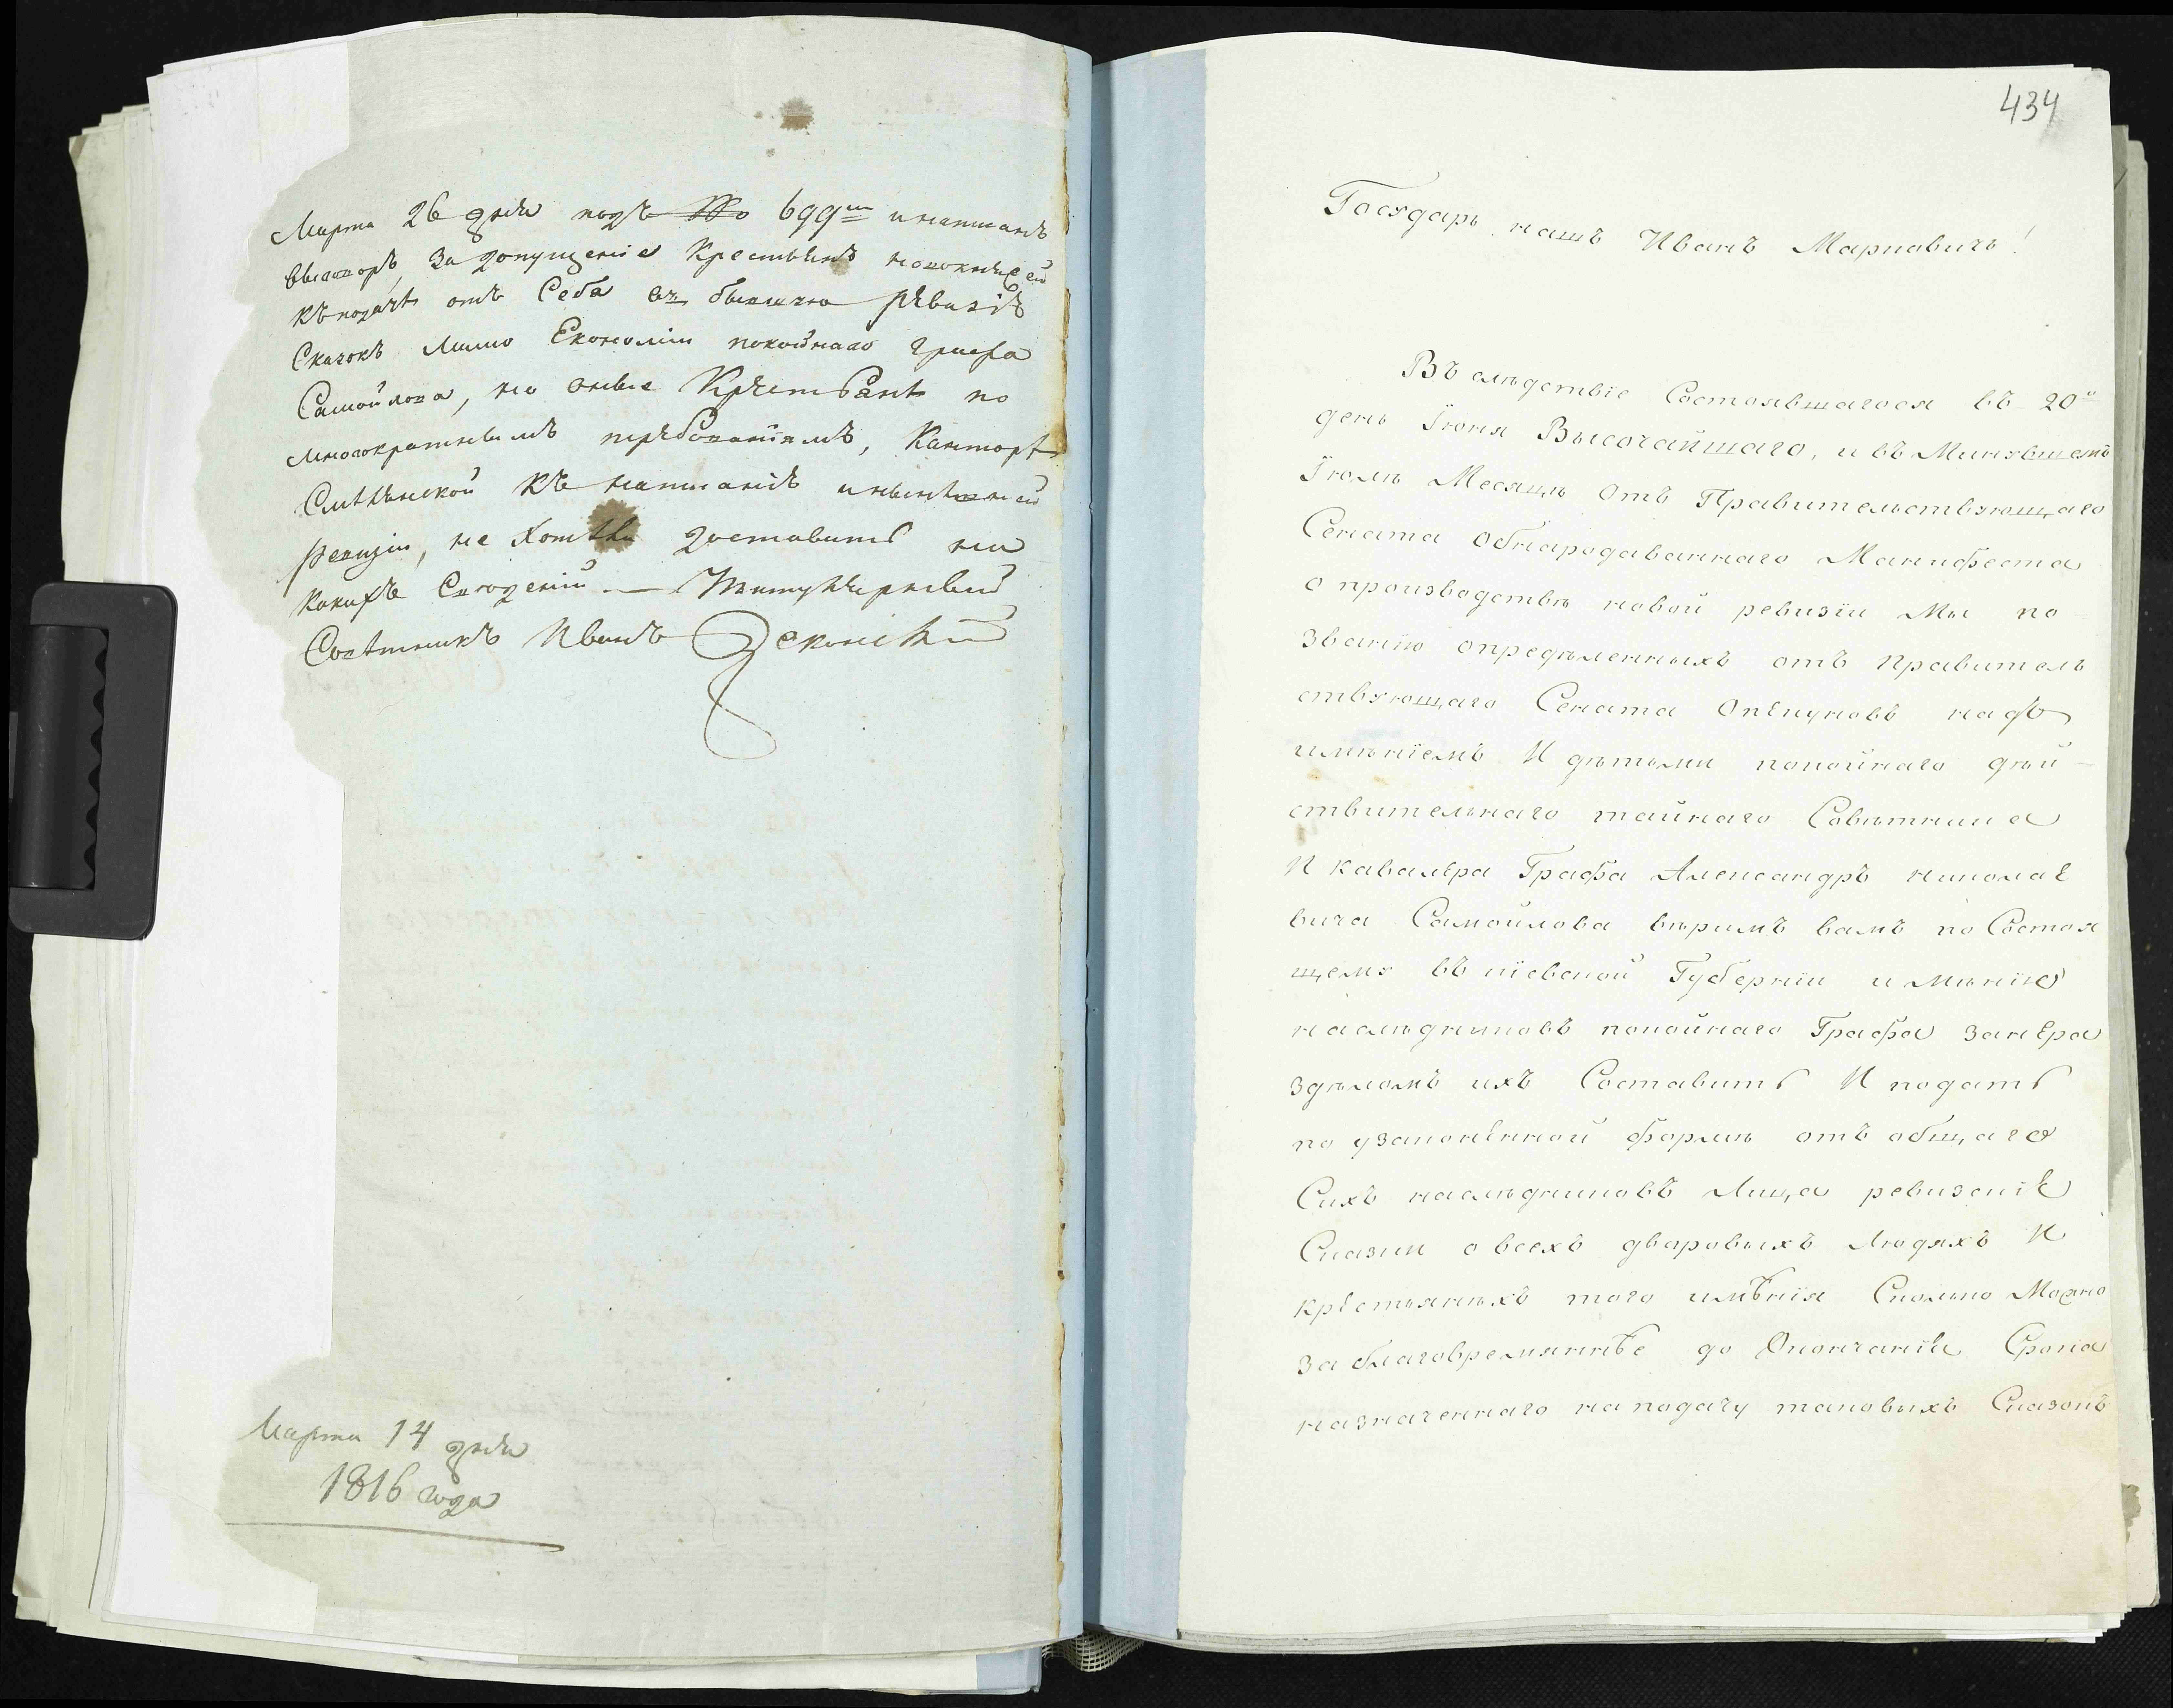 Марта 26 дня подъ 699м и написанъ
выговоръ, За допущеніе Крестьянъ
къ подачѣ отъ Себя въ бывшую рѣвизію
Сказокъ Мимо Економіи покойнаго графа
Самойлова, но оные Крѣстьянѣ по
многократнымъ трѣбованіямъ, Канторѣ
Смѣлянской къ написанію нынѣшнѣй
ревизіи, не хотѣли доставить ни
какихъ Свѣдений — Титулярный
Совѣтникъ Иванъ
Марта 14 дня
1816 года
434
Государь нашъ Иванъ Марковичъ!
Въ слѣдствіе Состоявшагося въ 20й
день Іюня Высочайшаго, и въ Минувшемъ
Іюлѣ Месяцѣ Отъ Правительствующаго
Сената Обнародаваннаго Манифеста
о производствѣ новой ревизіи Мы по
званію опредѣленныхъ отъ Правитель
ствующаго Сената Опекуновъ надъ
имѣніемъ И дѣтьми покойнаго дѣй-
ствительнаго тайнаго Совѣтника
И кавалера Графа Александръ николае
вича Самойлова вѣримъ вамъ по Состоя
щему въ кіевской Губерніи имѣнію
наслѣдниковъ покойнаго Графа за нера
здѣломъ ихъ Составить И подать
по узаконенной формѣ отъ общаго
Сихъ наслѣдниковъ Лица ревизскіе
Сказки о всехъ дваровыхъ Людяхъ И
крестьянѣхъ того имѣнія Сколько Можно
заблаговремяннѣе до Окончаніе Срока
назначеннаго на подачу таковыхъ Сказокъ